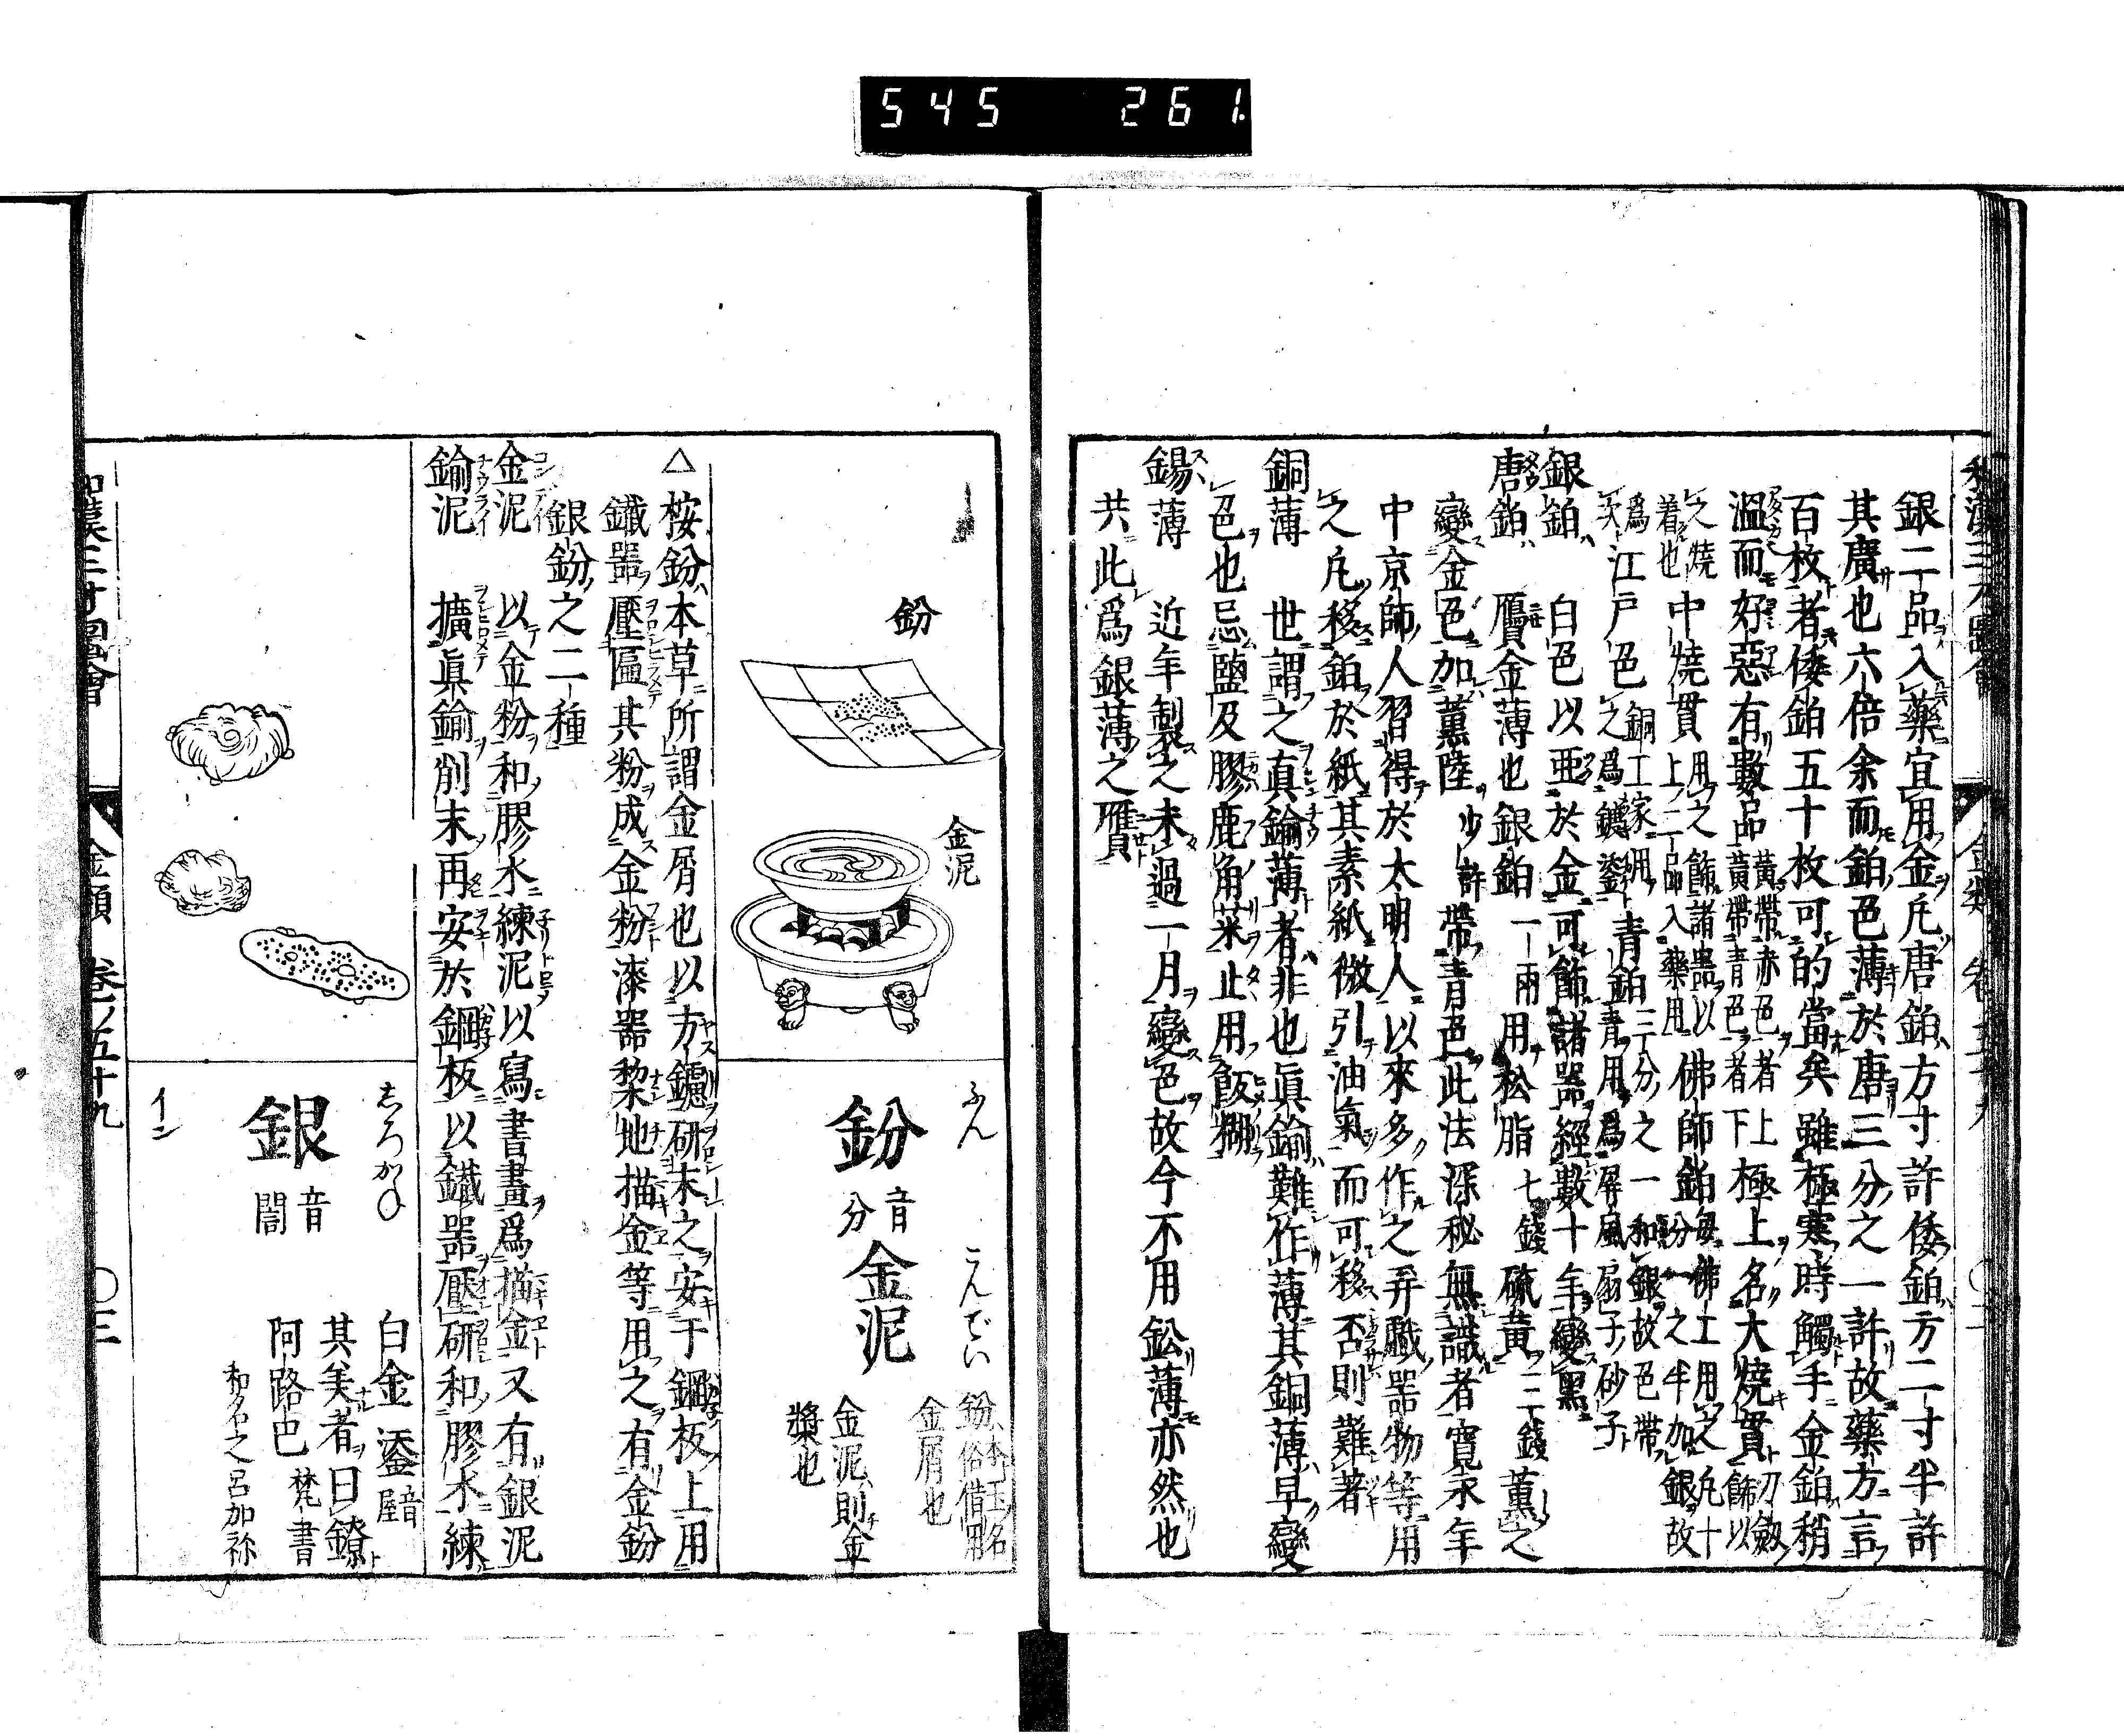 545 261
銀二品入藥宜用金凡唐鉑方寸許倭鉑方二寸半許
其廣也六倍余而鉑色薄於唐三分之一許故藥方言
百枚者倭鉑五十枚可的當矣雖極寒時觸手金鉑稍
溫而好惡有數品黃帶赤色者上黃帶青色者下極上名大燒貫刀劔飾以
之燒着也中燒貫上用之飾諸器以二品入藥用佛師鉑每佛工用之凡十分一之半加銀故
爲次江戸色銅工家用之爲鑞鋈青鉑三分之一和銀故色帶青用爲屏風扇子砂子
銀鉑 白色以亞於金可飾諸器經數十年變黑
唐鉑 贋金薄也銀鉑一兩用松脂七錢硫黃三錢薰之
變金色加薰陸少許帶青色此法深秘無識者寬永年
中京師人習得於太明人以來多作之弄職器物等用
之凡移鉑於紙其素紙微引油氣而可移否則難著
銅薄 世謂之真鍮薄者非也眞鍮難作薄其銅薄早變
色也忌鹽及膠鹿角菜止用飯糊
錫薄 近年製之未過一月變色故今不用鈆薄亦然也
共此爲銀薄之贋
鈖
金泥
ふん
鈖 音分
こんでい
金泥
鈖本玉名俗借用
金屑也
金泥則金
漿也
△桉鈖本草所謂金屑也以方鑢研末之安于鋼板上用
鐵器壓匾其粉成金粉漆器棃地描金等用之有金鈖
銀鈖之二種
金泥 以金粉和膠水練泥以寫書畫爲描金又有銀泥
鍮泥 擴眞鍮削末再安於鋼板以鐵器壓研和膠水練
しろかね
銀 音誾
イン
白金 鋈音屋
其美者曰鐐
阿路巴 梵書
和名之呂加祢
和漢三才圖會 金類 卷ノ五十九 〇三